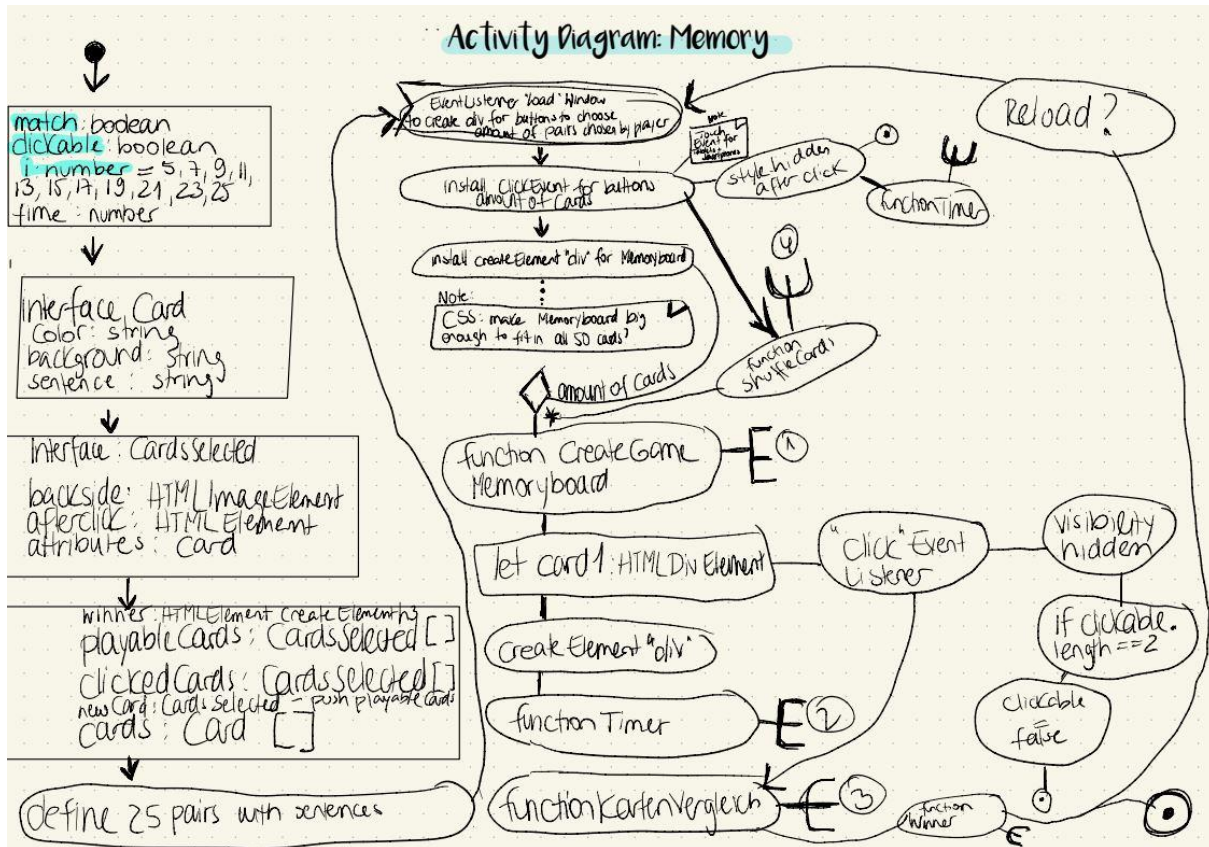 Activity Diagram: Memory
match: boolean
clickable: boolean
i number = 5, 7, 9, 11,
13, 15, 17, 19, 21, 23, 25
time: number
interface Card
color: string
background: string
sentence: string
interface: CardsSelected
backside: HTMLImageElement
afterclick: HTMLElement
attributes: Card
winner: HTMLElement createElement h3
playableCards: CardsSelected[]
clickedCards: CardsSelected[]
newCard: CardsSelected - push playableCards
cards: Card []
define 25 pairs with sentences
EventListener "load" Window
to create div for buttons to choose
amount of pairs chosen by player
install ClickEvent for buttons
amount of Cards
Note
Touch
Event for
Tablets +
Smartphones
style hidden
after click
functionTimer
install createElement "div" for Memoryboard
Note:
CSS: make Memoryboard big
enough to fit in all 50 cards?
4
function
shuffleCards
amount of cards
*
function CreateGame
Memoryboard
1
let card1: HTMLDivElement
"click" Event
Listener
visibility
hidden
if clickable.
length == 2
clickable
=
false
create Element "div"
functionTimer
2
functionKartenVergleich
3
function
Winner
Reload?